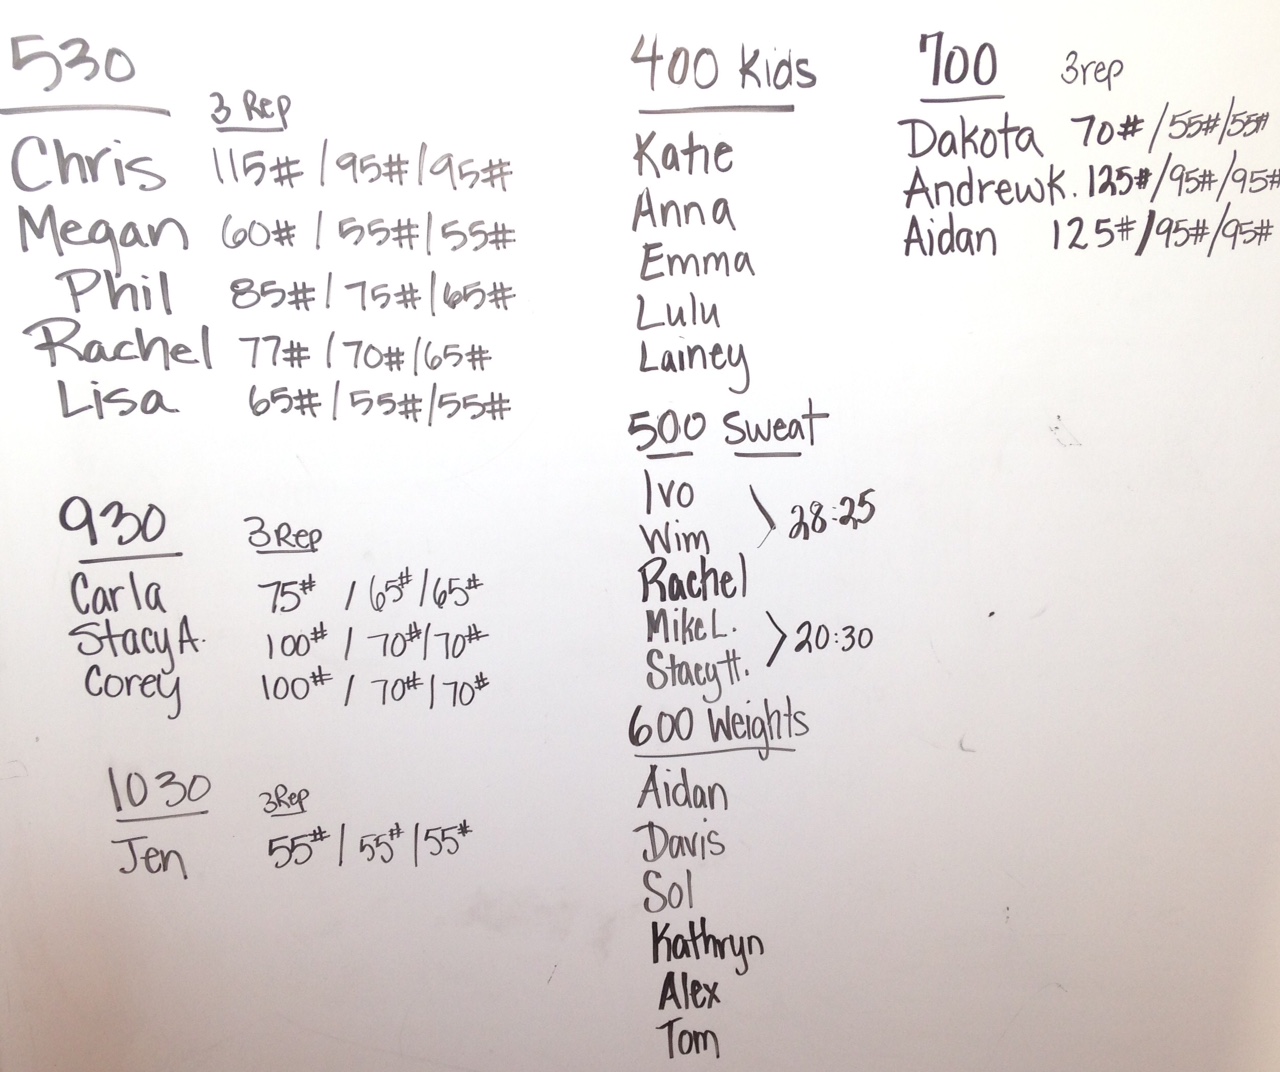 530
3 Rep
Chris 115# / 95# / 95#
Megan 60# / 55# / 55#
Phil 85# / 75# / 65#
Rachel 77# / 70# / 65#
Lisa 65# / 55# / 55#
930
3 Rep
Carla 75# / 65# / 65#
Stacy A. 100# / 70# / 70#
Corey 100# / 70# / 70#
1030
3 Rep
Jen 55# / 55# / 55#
400 Kids
Katie
Anna
Emma
Lulu
Lainey
500 Sweat
Ivo
Wim
28:25
Rachel
Mike L.
Stacy H.
20:30
600 Weights
Aidan
Davis
Sol
Kathryn
Alex
Tom
700 3rep
Dakota 70# / 55# / 55#
Andrew K. 125# / 95# / 95#
Aidan 125# / 95# / 95#